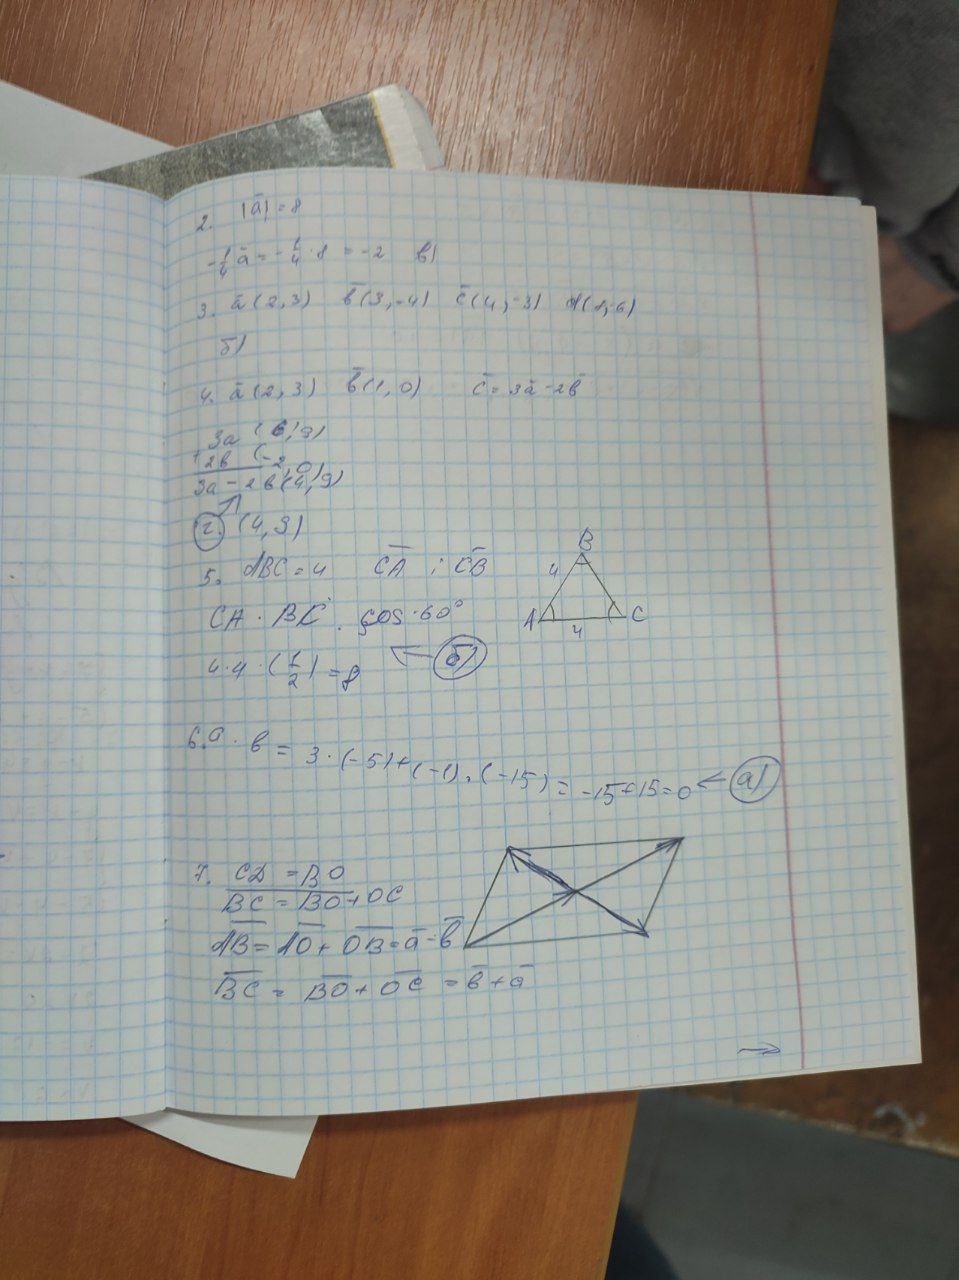 2. |ā| = 8
-1/4 ā = -1/4 · 8 = -2 в)
3. ā(2,3) b̄(3,-4) c̄(4,-3)
б)
4. ā(2,3) b̄(1,0) c̄ = 3ā-2b̄
3a (6,9)
+ 2в (-2,0)
3a-2в(4,9)
г. (4,9)
5. ABC = 4 CA ; CB
B
4
A
C
4
CA · BC · cos · 60°
б)
4·4·(1/2) = 8
6. a · b = 3·(-5)+(-1)·(-15) = -15+15=0 ← а)
7. CD = BO
BC = BO + OC
AB = AO + OB = ā - b̄
BC = BO + OC = b̄ + ā
→